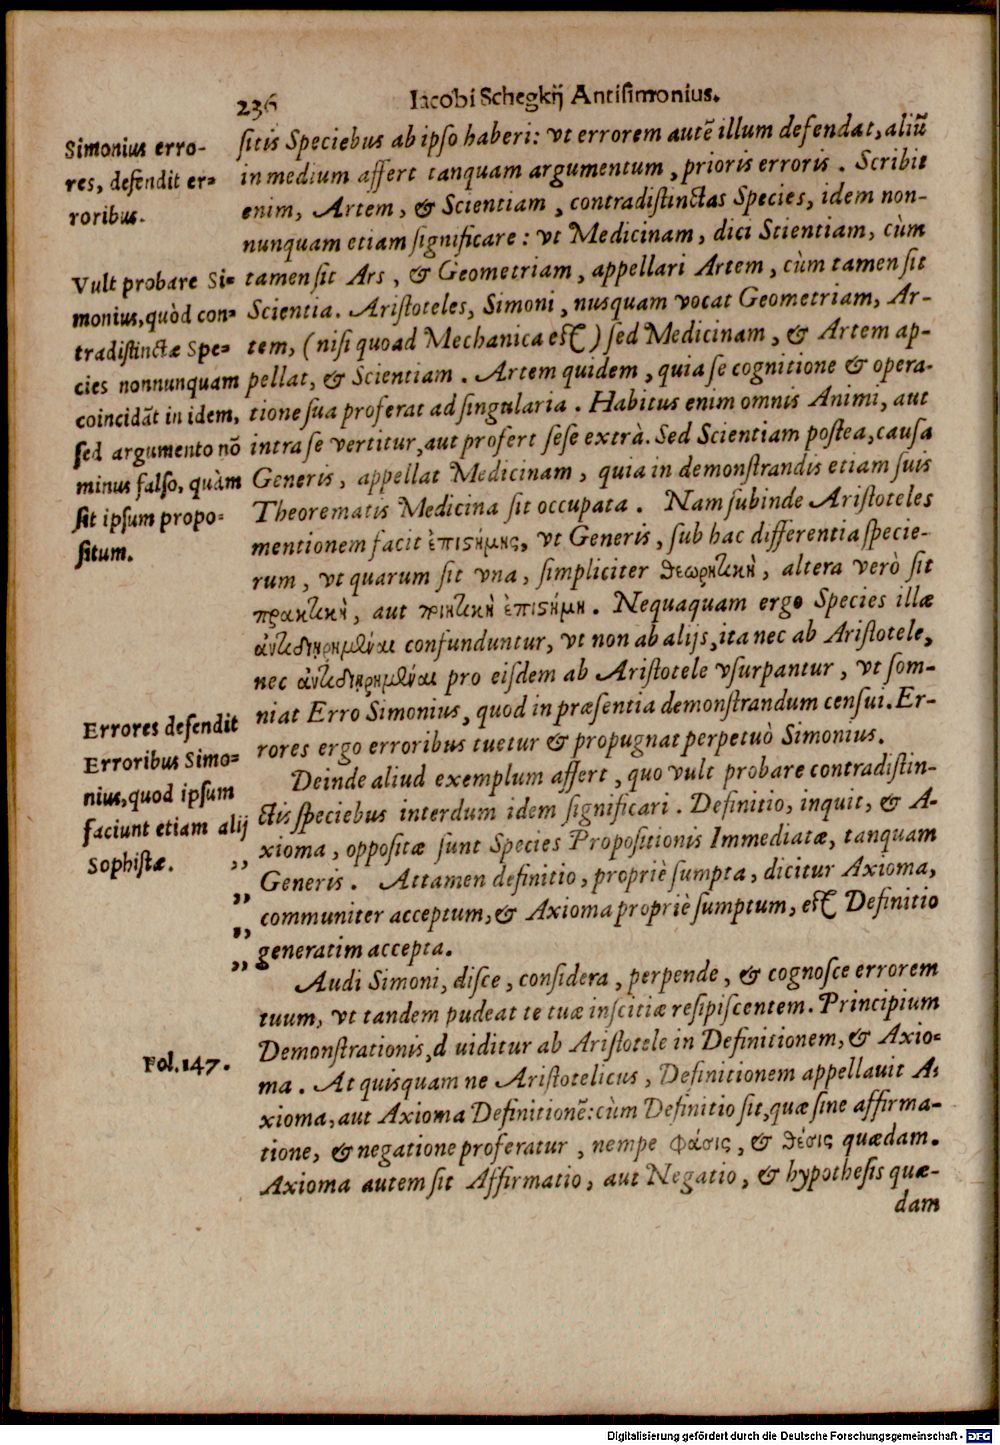 236 Iacobi Schegkij Antisimonius.
Simonius erro-
res, defendit er-
roribus.
sitis Speciebus ab ipso haberi: vt errorem autē illum defendat, aliū
in medium affert tanquam argumentum, prioris erroris. Scribit
enim, Artem, & Scientiam, contradistinctas Species, idem non-
nunquam etiam significare: vt Medicinam, dici Stientiam, cùm
Vult probare Si-
monius, quòd con-
tradistinctæ Spe-
cies nonnunquam
coincidāt in idem,
sed argumento nō
minus falso, quàm
sit ipsum propo-
situm.
tamen sit Ars, & Geometriam, appellari Artem, cùm tamen sit
Scientia. Aristoteles, Simoni, nusquam vocat Geometriam, Ar-
tem, (nisi quoad Mechanica est) sed Medicinam, & Artem ap-
pellat, & Scientiam. Artem quidem, quia se cognitione & opera-
tione sua proferat ad singularia. Habitus enim omnis Animi, aut
intra se vertitur, aut profert sese extrà. Sed Scientiam postea, causa
Generis, appellat Medicinam, quia in demonstrandis etiam suis
Theorematis Medicina sit occupata. Nam subinde Aristoteles
mentionem facit ἐπιςήμης, vt Generis, sub hac differentia specie-
rum, vt quarum sit vna, simpliciter θεωρητικὴ, altera verò sit
πρακτικὴ, aut ποιητικὴ ἐπιςήμη. Nequaquam ergo Species illæ
ἀντιδιῃρημέναι confunduntur, vt non ab alijs, ita nec ab Aristotele,
nec ἀντιδιῃρημέναι pro eisdem ab Aristotele vsurpantur, vt som-
niat Erro Simonius, quod in præsentia demonstrandum censui. Er-
rores ergo erroribus tuetur & propugnat perpetuò Simonius.
Errores defendit
Erroribus Simo-
nius, quod ipsum
faciunt etiam alij
Sophistæ.
Deinde aliud exemplum affert, quo vult probare contradistin-
ctis speciebus interdum idem significari. Definitio, inquit, & A-
„ xioma, oppositæ sunt Species Propositionis Immediatæ, tanquam
„ Generis. Attamen definitio, propriè sumpta, dicitur Axioma,
„ communiter acceptum, & Axioma propriè sumptum, est Definitio
„ generatim accepta.
Audi Simoni, disce, considera, perpende, & cognosce errorem
tuum, vt tandem pudeat te tuæ inscitiæ resipiscentem. Principium
Fol. 147.
Demonstrationis, d uiditur ab Aristotele in Definitionem, & Axio-
ma. At quisquam ne Aristotelicus, Definitionem appellauit A-
xioma, aut Axioma Definitionē: cùm Definitio sit, quæ sine affirma-
tione, & negatione proferatur, nempe φάσις, & θέσις quædam.
Axioma autem sit Affirmatio, aut Negatio, & hypothesis quæ-
dam
Digitalisierung gefördert durch die Deutsche Forschungsgemeinschaft - DFG